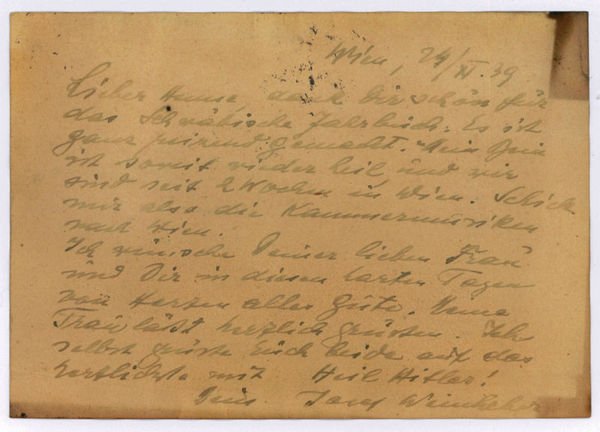 Wien, 24/XI.39
Lieber Hanse, dank Dir schön für
das Schwäbische Jahrbuch. Es ist
ganz gemacht. Mein Bein
ist somit wieder heil, und wir
sind seit 2 Wochen in Wien. Schick
mir also die Kammermusiken
nach Wien.
Ich wünsche Deiner lieben Frau
und Dir in diesen harten Tagen
von Herzen alles Gute. Meine
Frau läßt herzlich grüßen. Ich
selbst grüße Euch beide auf das
herzlichste mit Heil Hitler!
Dein Josef